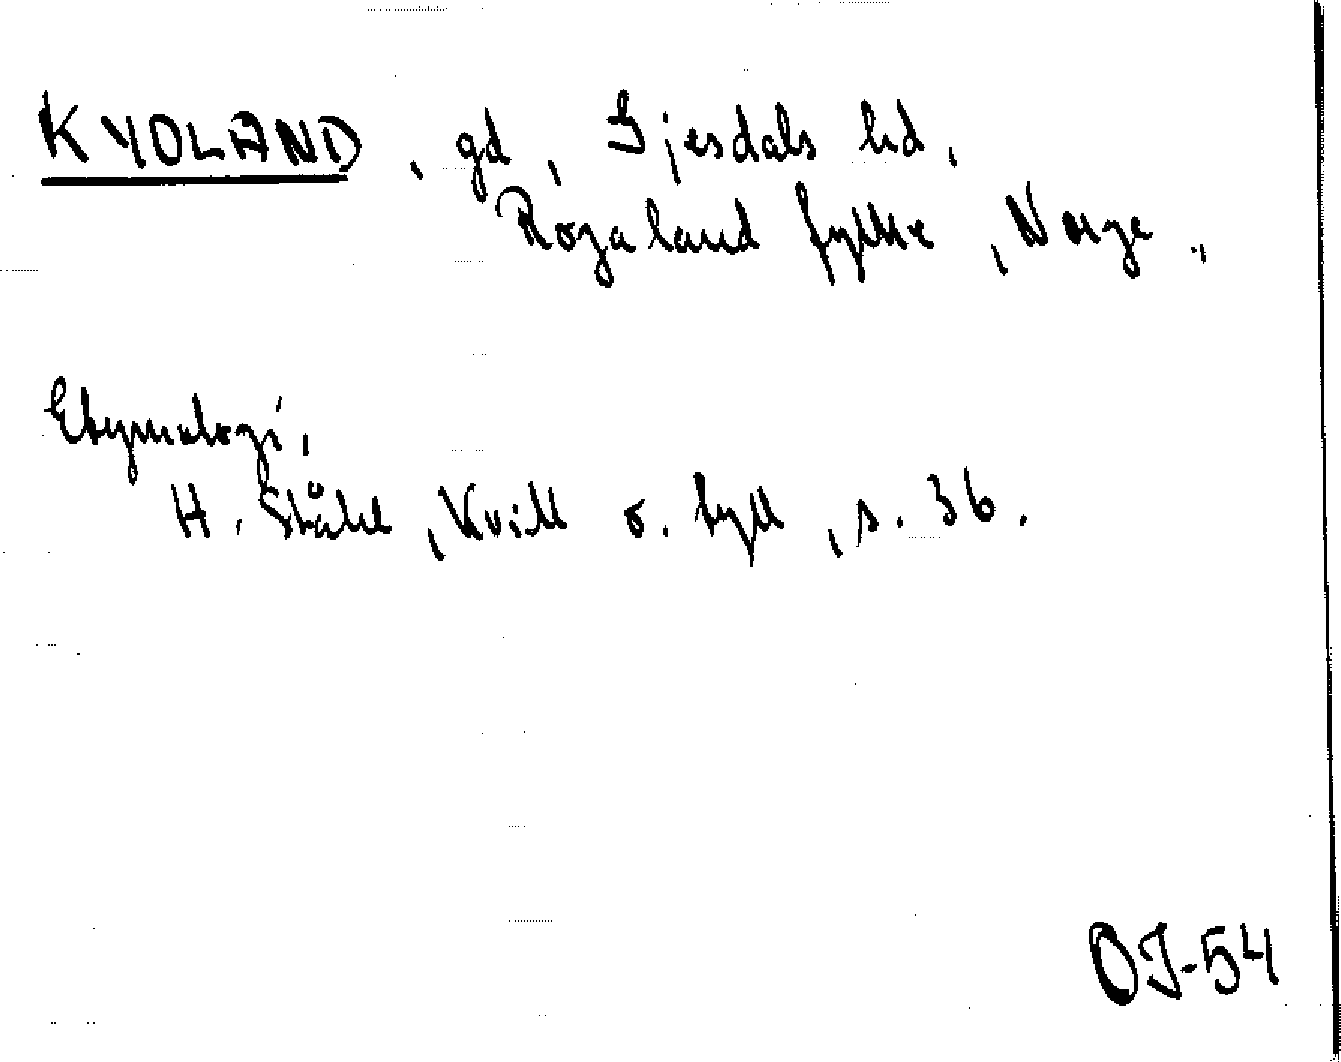 KYOLAND, gd, Gjesdals hd,
Rogaland fylke, Norge.,
Etymologi,
H. Ståhl, Kvill o. tyll, s. 36.
OJ-54